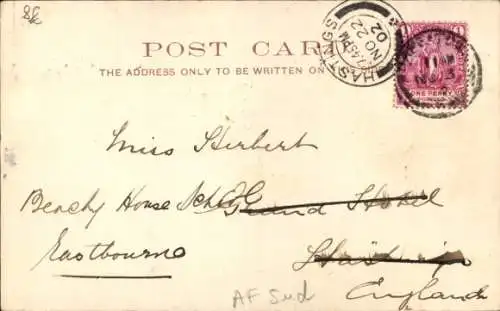 8k
POST CARD
THE ADDRESS ONLY TO BE WRITTEN ON
HASTINGS
7.45PM
NO 22
02
ONE PENNY
Miss Herbert
Beachy House School
Grand Hotel
Eastbourne
Hastings
England
AF Sud